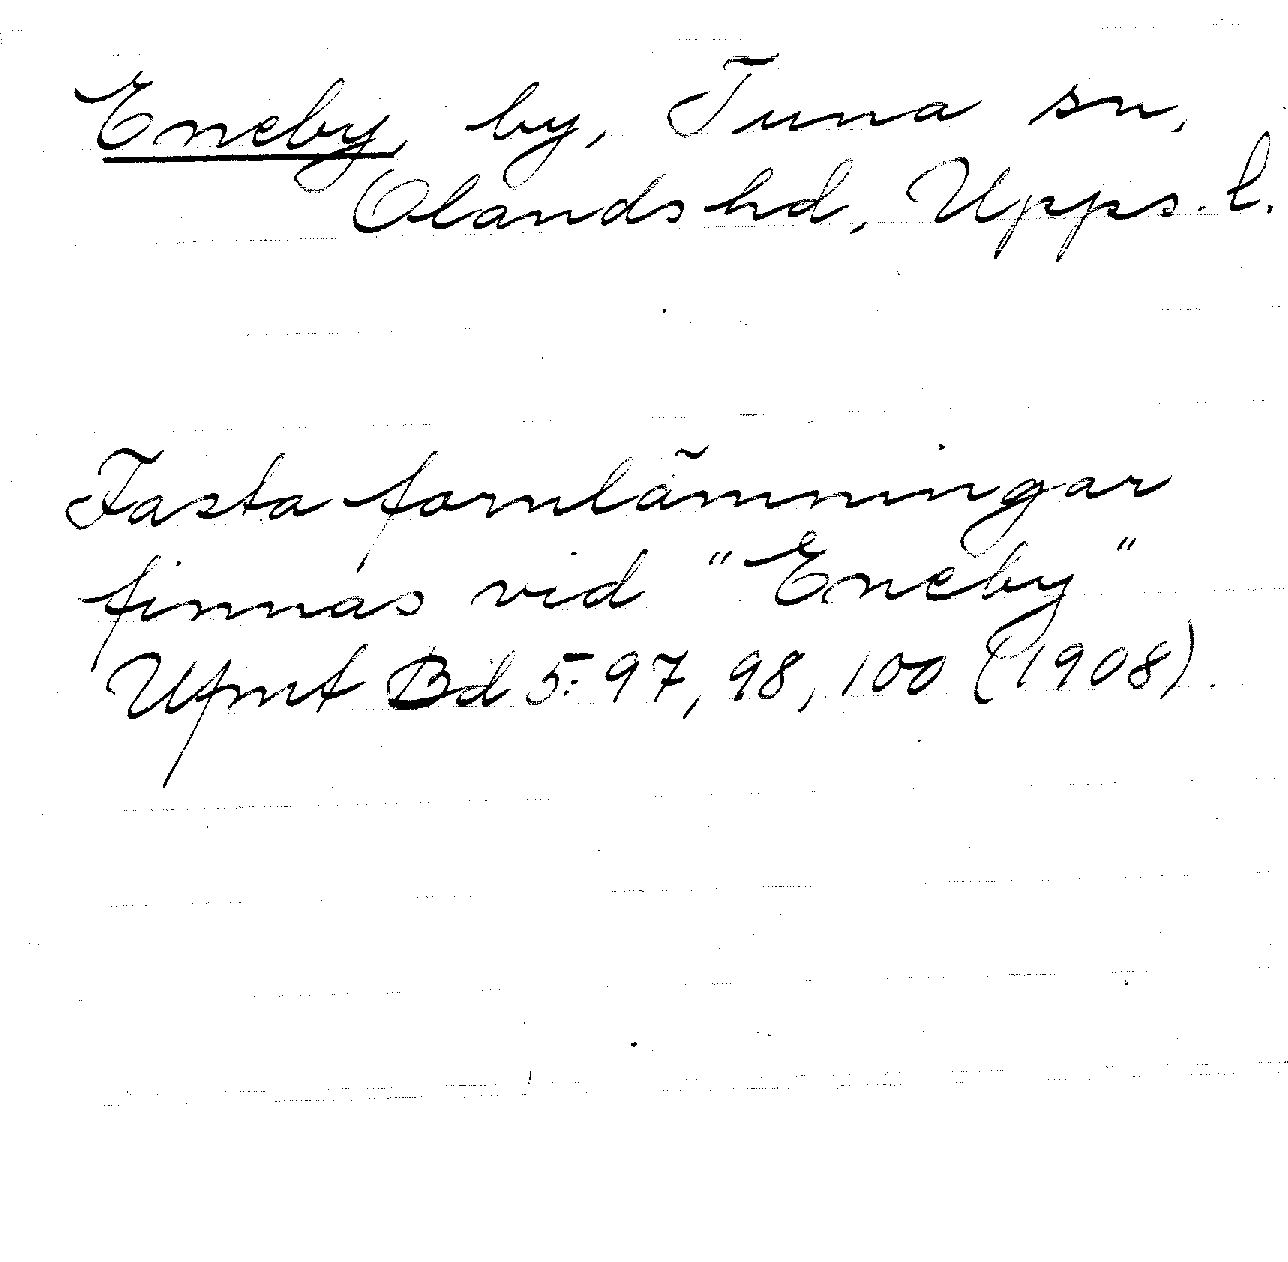 Eneby, by, Tuna sn,
Olands hd, Upps. l.
Fasta fornlämningar
finnas vid "Eneby"
Ufmt Bd 5: 97, 98, 100 (1908).